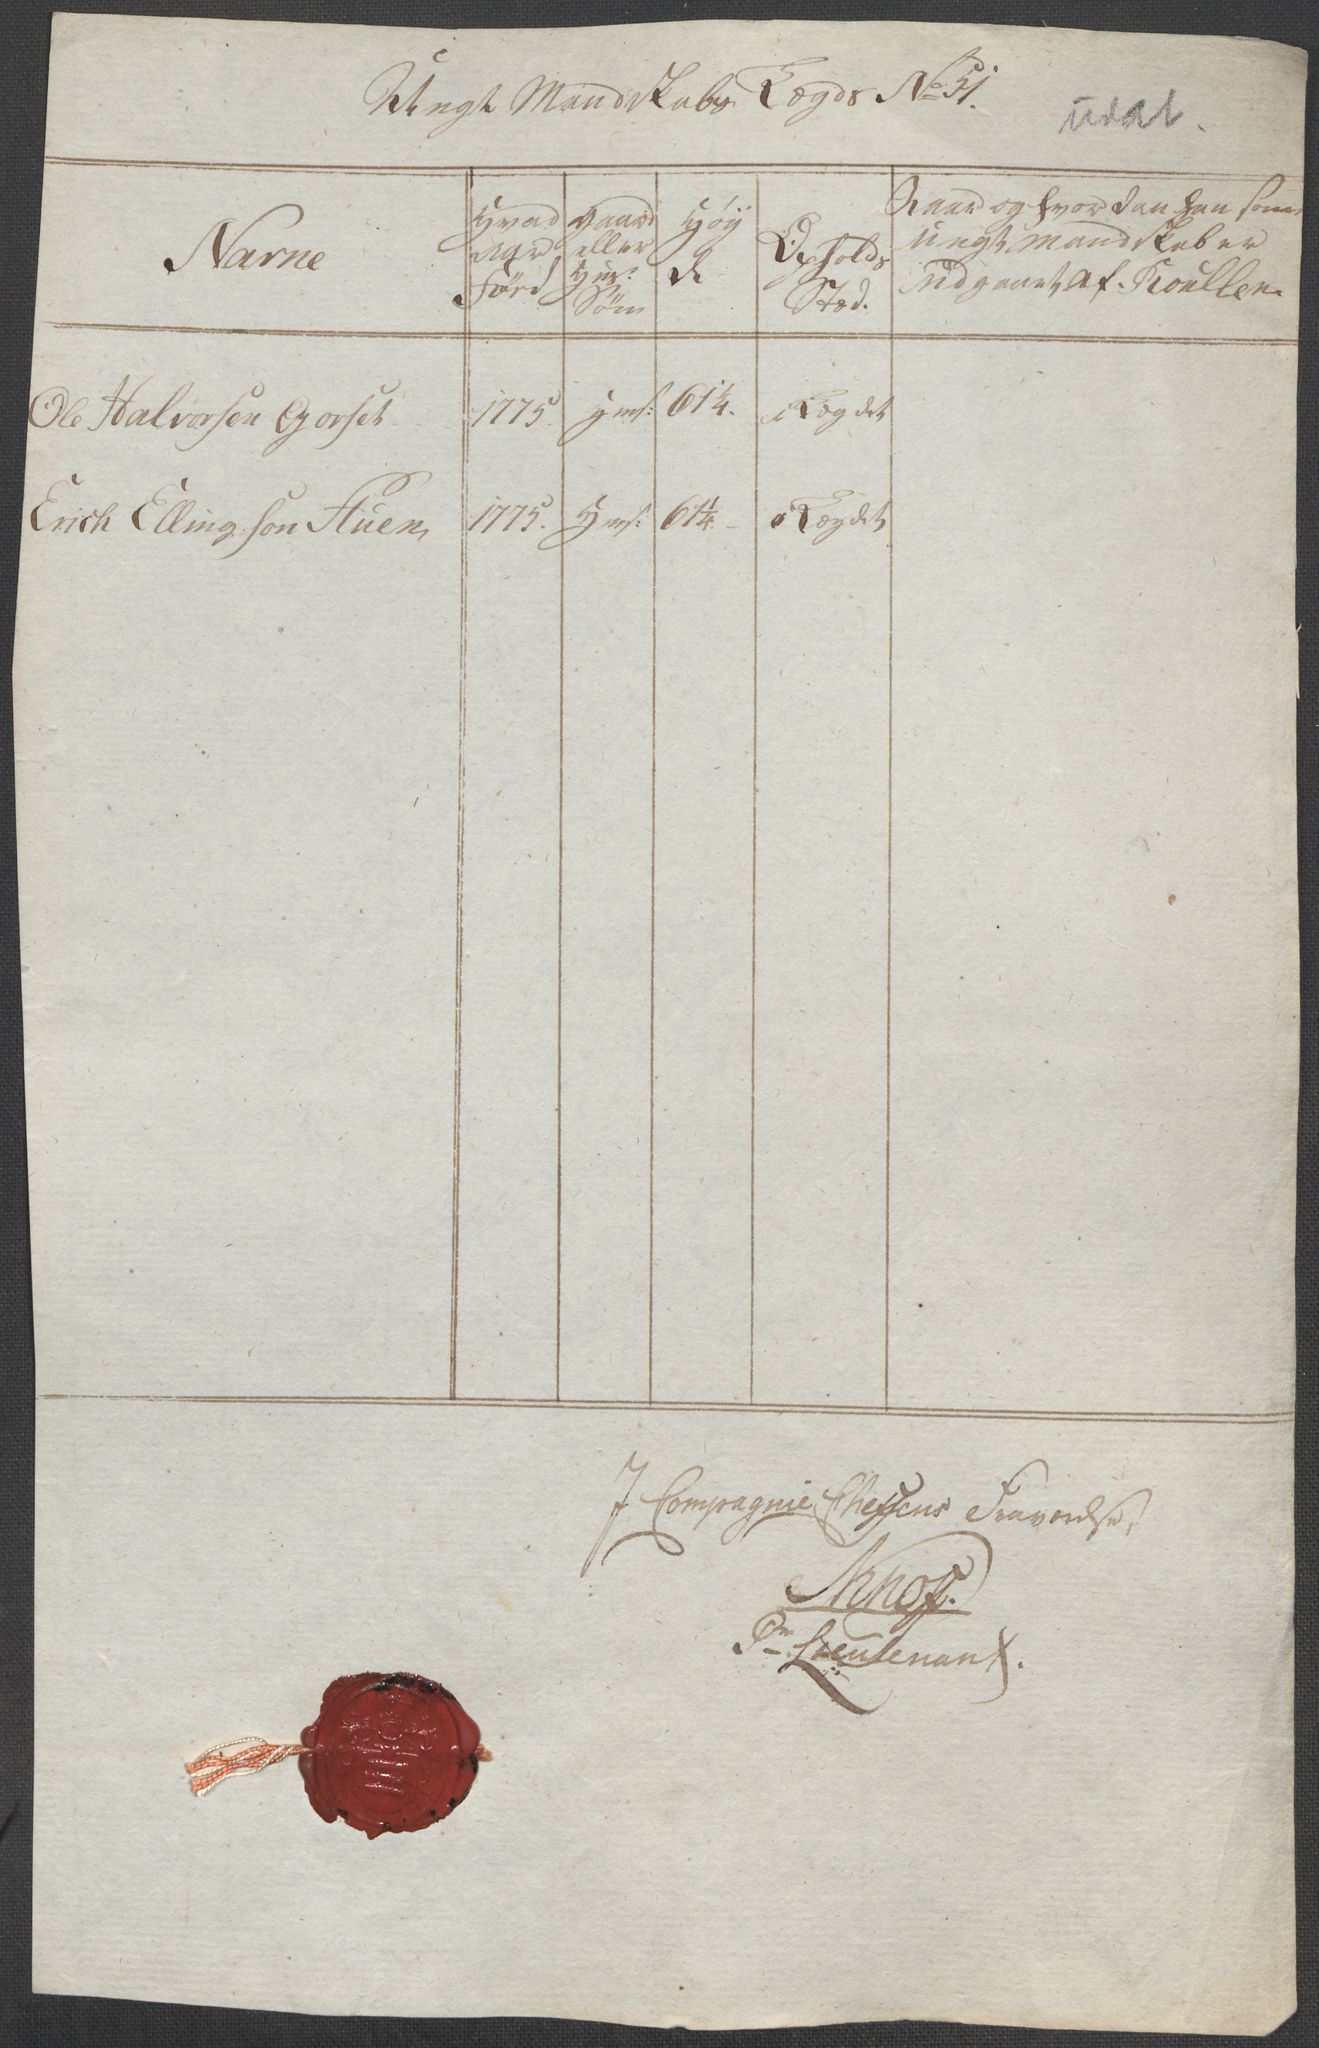 Ungt Mandskabs Lægds No 51.
Navne
Hvad
Aar
Föed
Gaard
eller
Huus
Søn
Høy
de
Opholds
Stæd.
Naar og hvordan han som
Ungt Mandskab er
udgaaet af Roullen.
Ole Halvorsen Gorset 1775. Hms: 61 1/4. i Lægdet
Erich Ellingsøn Huen 1775. Hms: 61 1/4. i Lægdet
I Compagnie Cheffens Fraværelse,
Knoff.
Pr. Lieutenant.